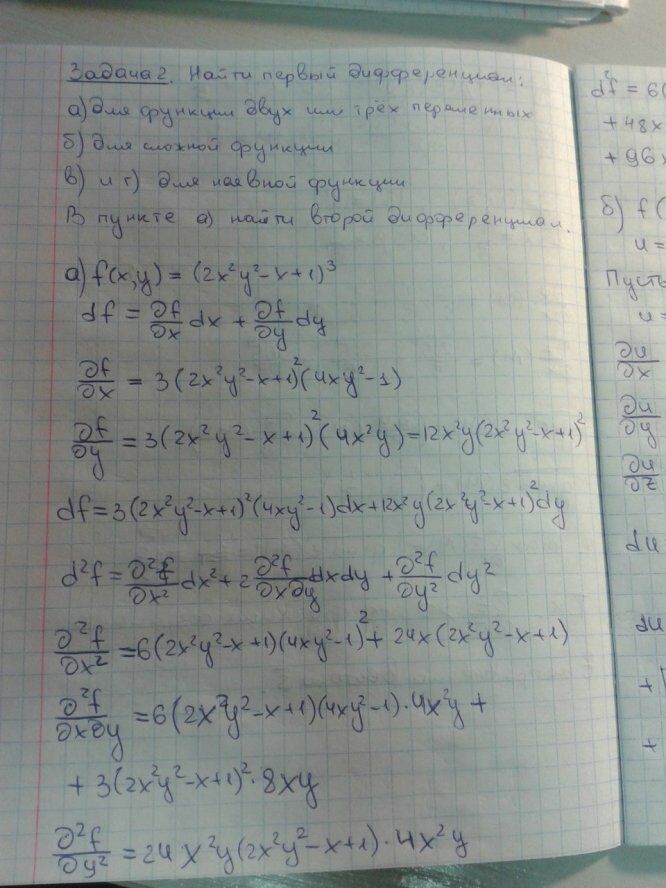 Задача 2. Найти первый дифференциал:
а) для функции двух или трёх переменных
б) для сложной функции
в) и г) для неявной функции
В пункте а) найти второй дифференциал.
а) f(x,y) = (2x²y²-x+1)³
df = ∂f/∂x dx + ∂f/∂y dy
∂f/∂x = 3(2x²y²-x+1)²(4xy²-1)
∂f/∂y = 3(2x²y²-x+1)²(4x²y)=12x²y(2x²y²-x+1)²
df=3(2x²y²-x+1)²(4xy²-1)dx+12x²y(2x²y²-x+1)²dy
d²f = ∂²f/∂x² dx²+2 ∂²f/∂x∂y dxdy + ∂²f/∂y² dy²
∂²f/∂x² =6(2x²y²-x+1)(4xy²-1)²+ 24x(2x²y²-x+1)
∂²f/∂x∂y =6(2x²y²-x+1)(4xy²-1)·4x²y+
+3(2x²y²-x+1)²·8xy
∂²f/∂y² =24x²y(2x²y²-x+1)·4x²y
d²f = 6(
+48x
+96x
б) f(
u=
Пусть
u=
∂u/∂x
∂u/∂y
∂u/∂z
du
du
+
+